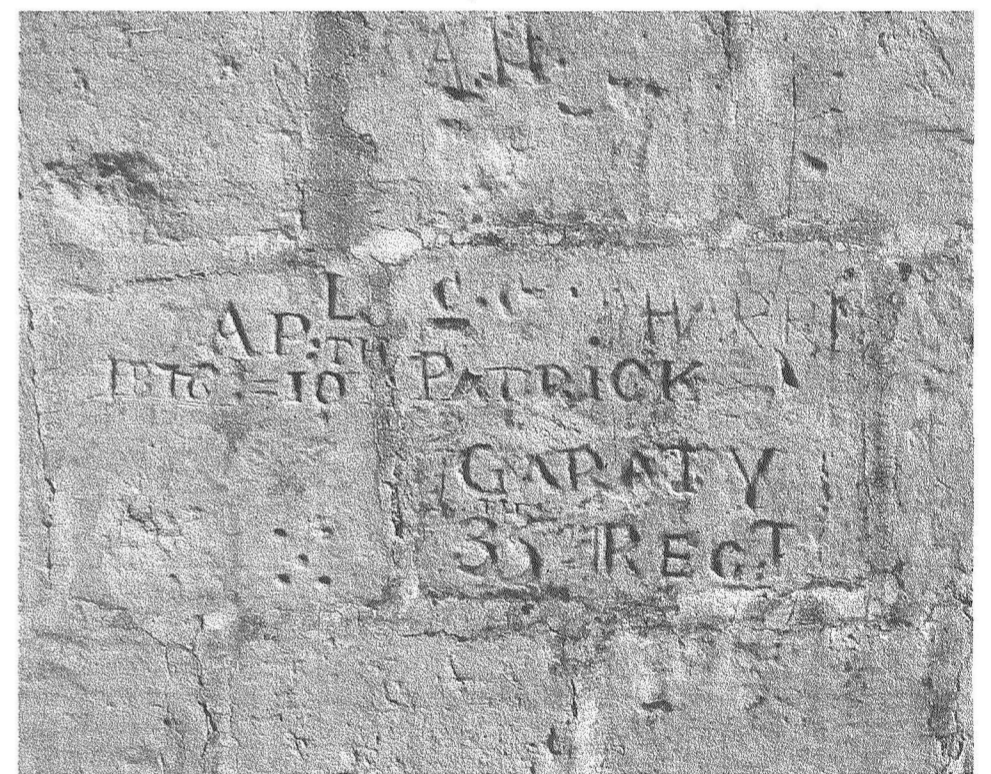 A.H.
AP:L
TH
1816=10
PATRICK
GARATY
35 REGT